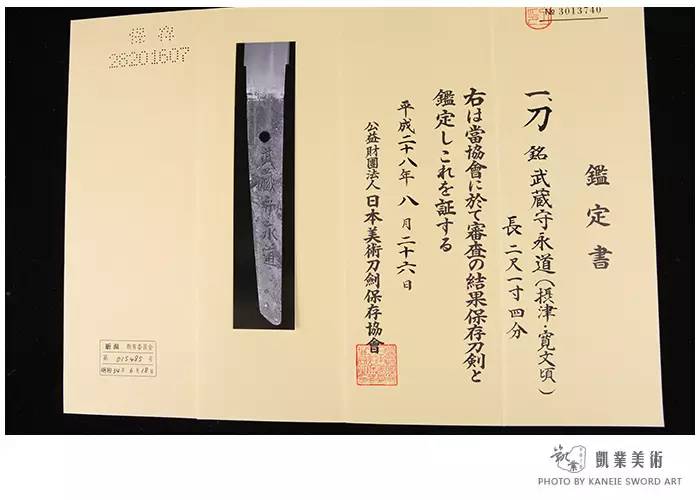 № 3013740
鑑定書
一、刀 銘 武蔵守永道(摂津・寛文頃)
長 二尺一寸四分
右は當協會に於て審査の結果保存刀剣と
鑑定しこれを証する
平成二十八年 八月二十六日
公益財團法人 日本美術刀剣保存協會
武蔵守永道
保存
28201607
新潟 教育委員会
第 015485 号
昭和 34年 6月 18日
凱業美術
PHOTO BY KANEIE SWORD ART